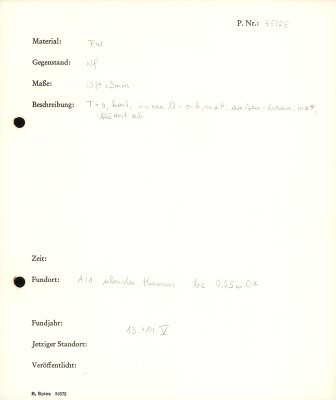 P. Nr.: 75/25
Material: FW
Gegenstand: Wf
Maße: WM = 3mm
Beschreibung: T = g, hart, innen, matt, außen: braun, matt,
blättert ab
Zeit:
Fundort: A:1 oberster Humus bis 0,25 m
Fundjahr: 13.+14. V
Jetziger Standort:
Veröffentlicht:
R. Spies